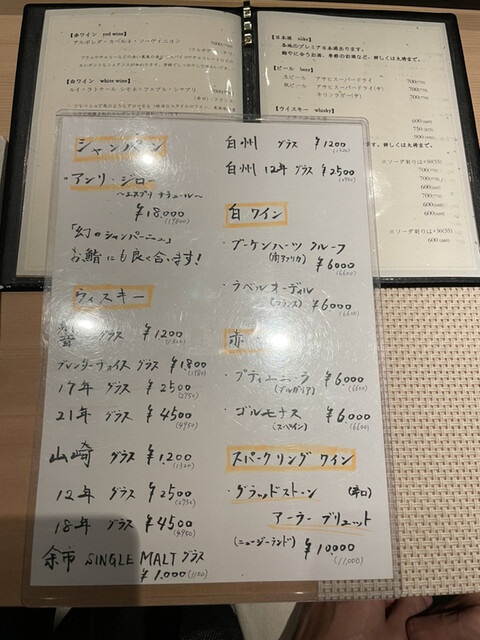 シャンパン
・アンリ・ジロー
～エスプリ ナチュール～
¥18,000
(19800)
「幻のシャンパーニュ」
お鮨にも良く合います!
ウィスキー
響 グラス ¥1200
(1320)
ブレンダーチョイス グラス ¥1,800
(1980)
17年 グラス ¥2500
(2750)
21年 グラス ¥4500
(4950)
山崎 グラス ¥1,200
(1320)
12年 グラス ¥2500
(2750)
18年 グラス ¥4500
(4950)
余市 SINGLE MALT グラス
¥1,000 (1100)
白州 グラス ¥1200
(1320)
白州 12年 グラス ¥2500
(2750)
白ワイン
・ブーケンハーツクルーフ
(南アフリカ) ¥6000
(6600)
・ラベルオーディル
(フランス) ¥6000
(6600)
赤
・プティエニーラ ¥6,000
(ブルガリア) (6600)
・ゴルモナス ¥6,000
(スペイン) (6600)
スパークリングワイン
・グラッドストーン (辛口)
アーラー ブリュット
(ニュージーランド) ¥10,000
(11,000)
【赤ワイン red wine】
【白ワイン white wine】
【日本酒 sake】
各地のプレミアム日本酒あります。
【ビール beer】
生ビール アサヒスーパードライ
瓶ビール アサヒスーパードライ(中)
キリンラガー(中)
【ウイスキー whisky】